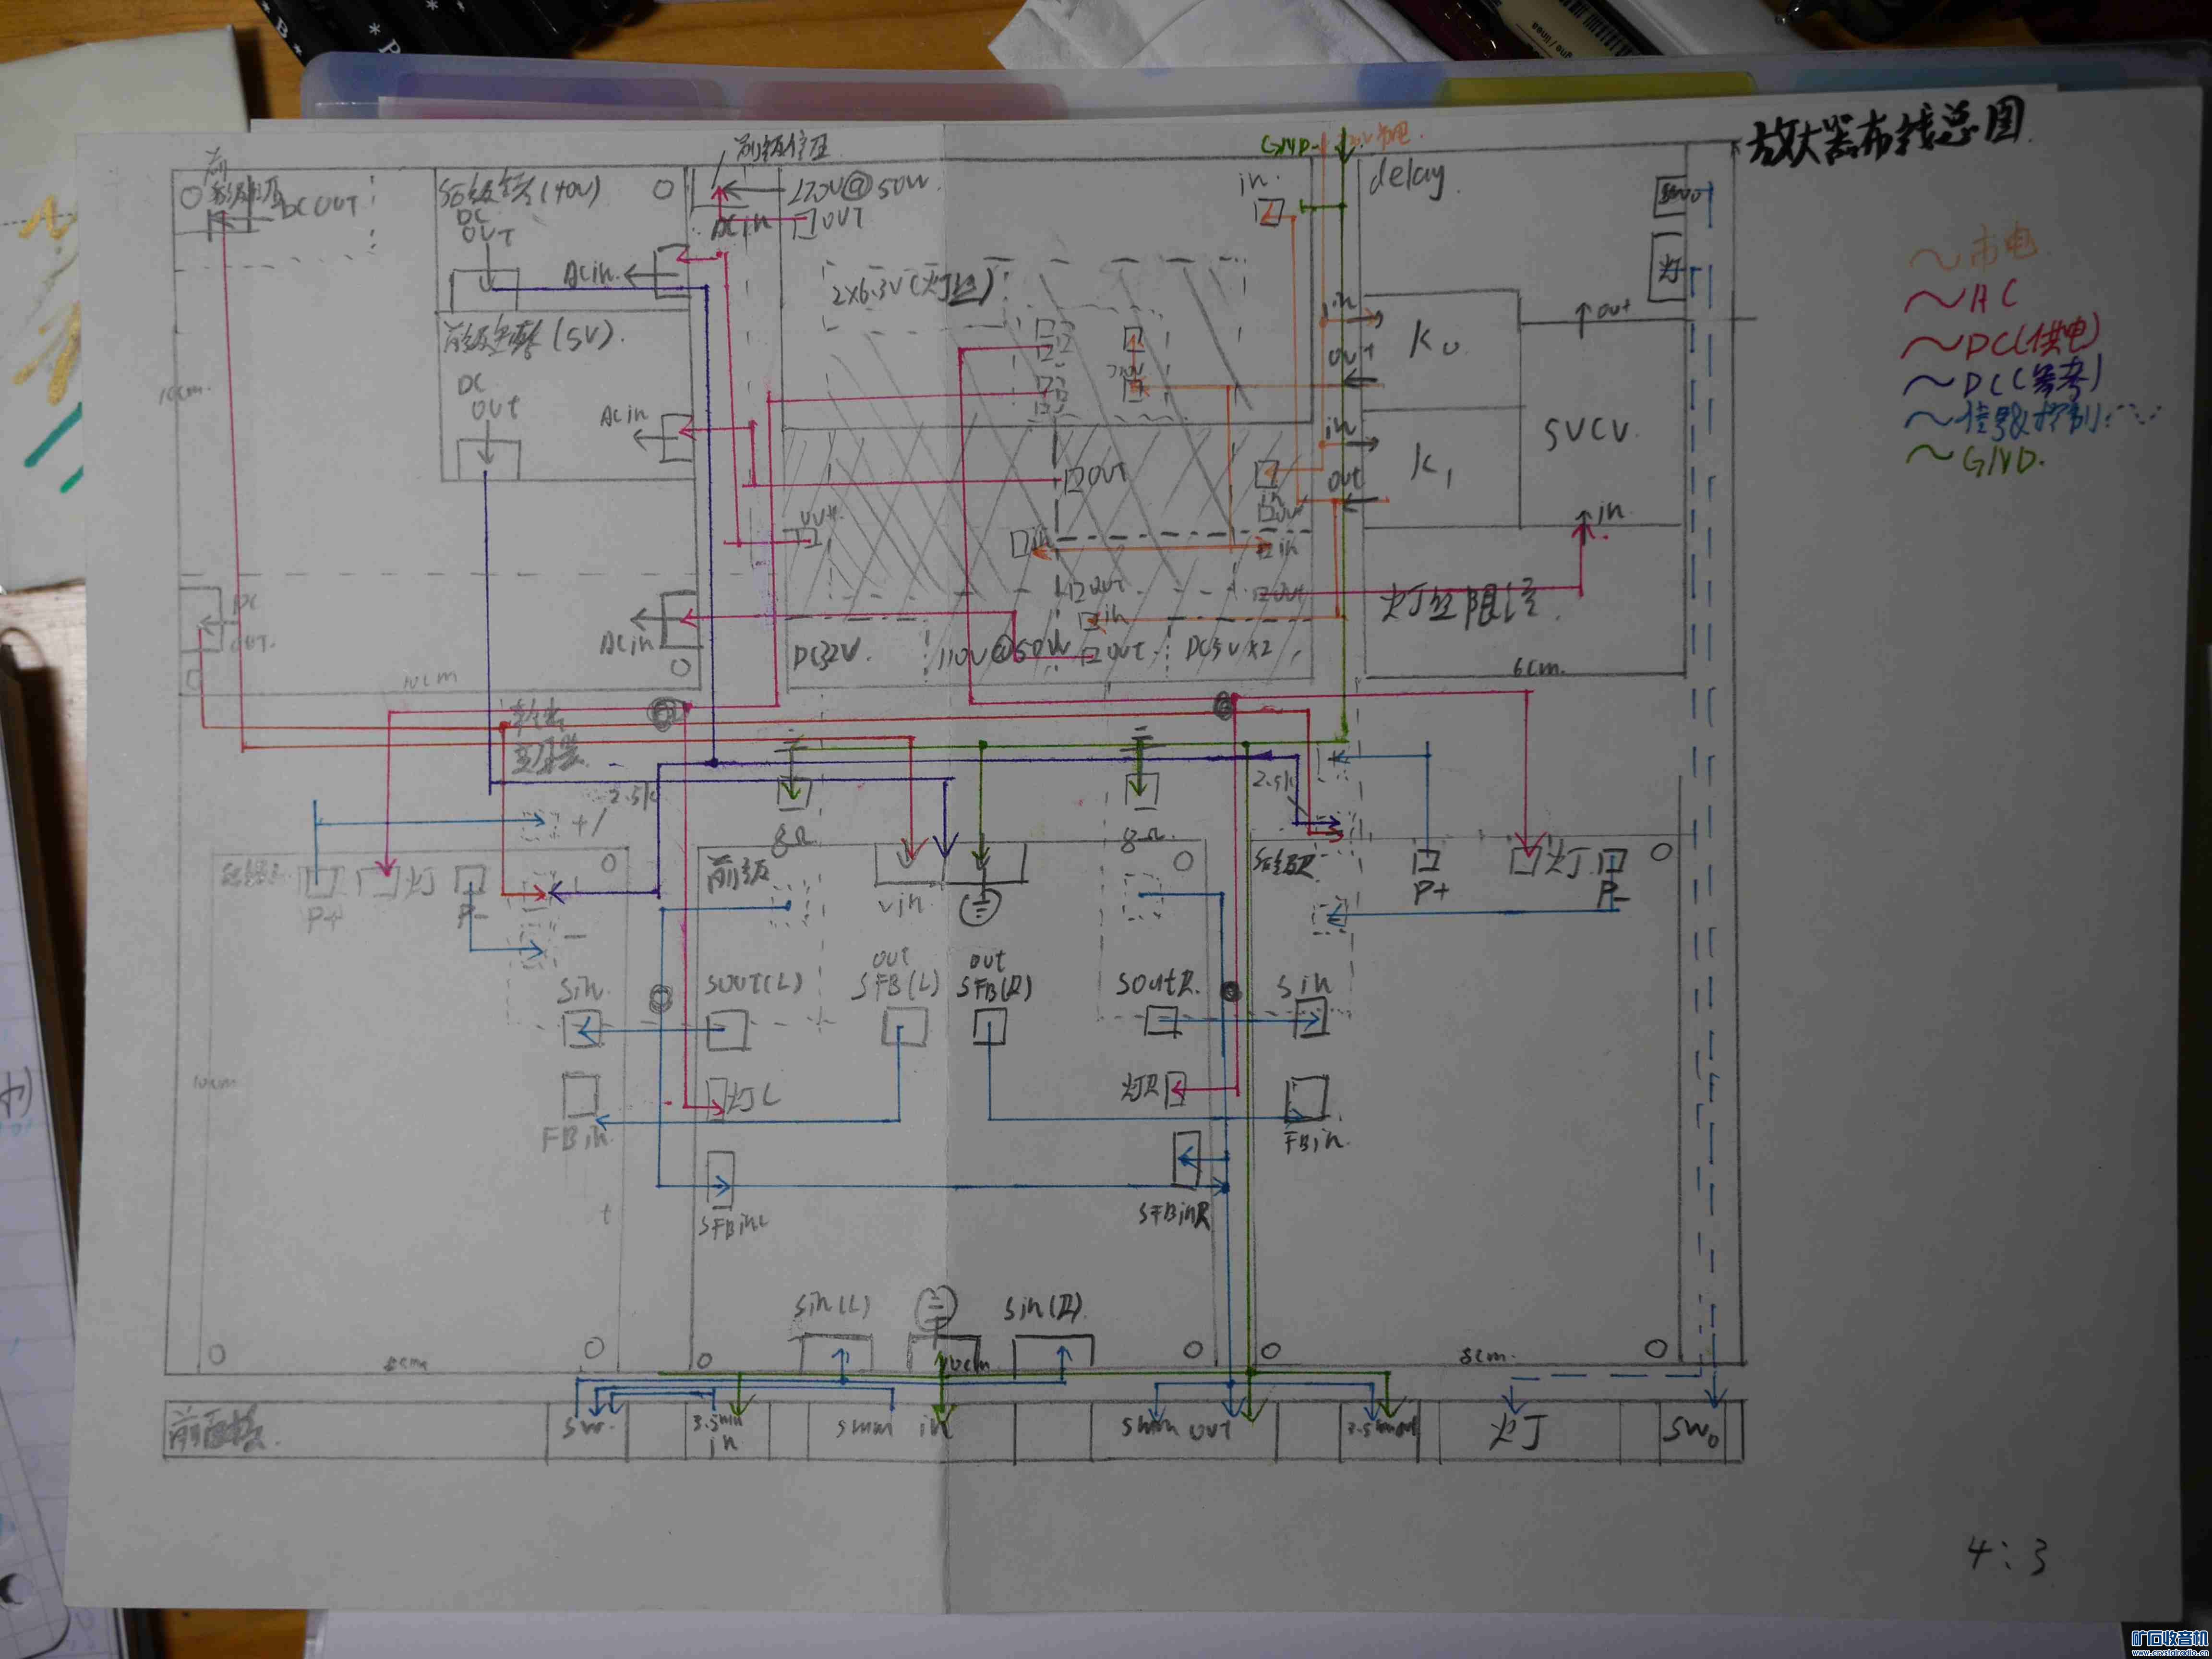 放大器布线总图
GND
delay
前级
DC OUT
(40V)
DC
OUT
AC in
220V@50W
OUT
AC in
in
灯
2x6.3V(灯丝)
(5V)
DC
OUT
AC in
in
out
K0
in
out
K1
5VCV
out
in
OUT
in
in
OUT
in
OUT
out
灯丝限流
AC in
DC
OUT
DC32V
110V@50W
DC5V x2
10cm
10cm
6cm
~市电
~AC
~DC(供电)
~DC(参考)
~信号&控制
~GND
2.5k
2.5k
+/
8Ω
8Ω
P+
灯
P-
前级
Vin
后级R
P+
灯
P-
Sin
SOUT(L)
OUT
SFB(L)
OUT
SFB(R)
SOUTR
Sin
10cm
灯L
灯R
FBin
FBin
SFBinL
SFBinR
Sin(L)
Sin(R)
10cm
8cm
前面板
SW
3.5mm
in
5mm in
5mm OUT
3.5mm out
灯
SW0
4:3
矿石收音机
www.crystalradio.cn